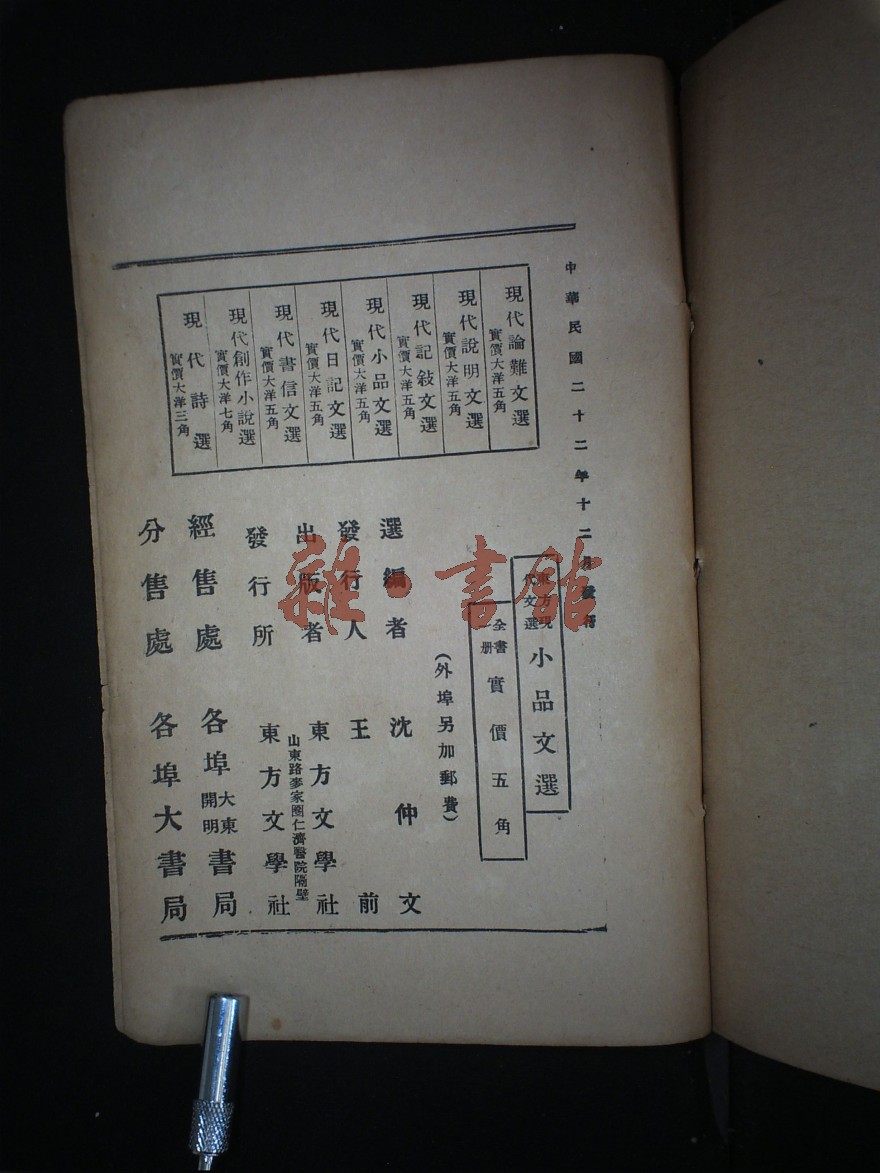 中華民國二十二年十二月發行
現代論難文選
實價大洋五角
現代說明文選
實價大洋五角
現代記敍文選
實價大洋五角
現代小品文選
實價大洋五角
現代日記文選
實價大洋五角
現代書信文選
實價大洋五角
現代創作小說選
實價大洋七角
現代詩選
實價大洋三角
東方現代文選
小品文選
全書 册 實價五角
(外埠另加郵費)
選編者 沈仲文
發行人 王前
出版者 東方文學社
山東路麥家圈仁濟醫院隔壁
發行所 東方文學社
經售處 各埠大東開明書局
分售處 各埠大書局
雜·書館